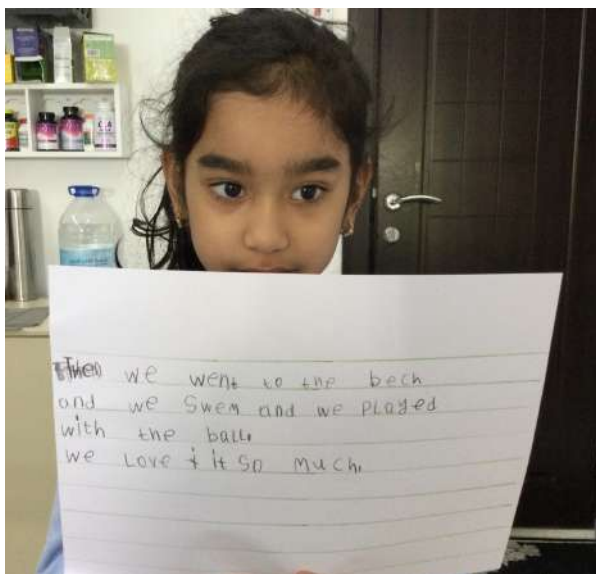 Then we went to the bech
and we swem and we played
with the ball.
we Love it so much.